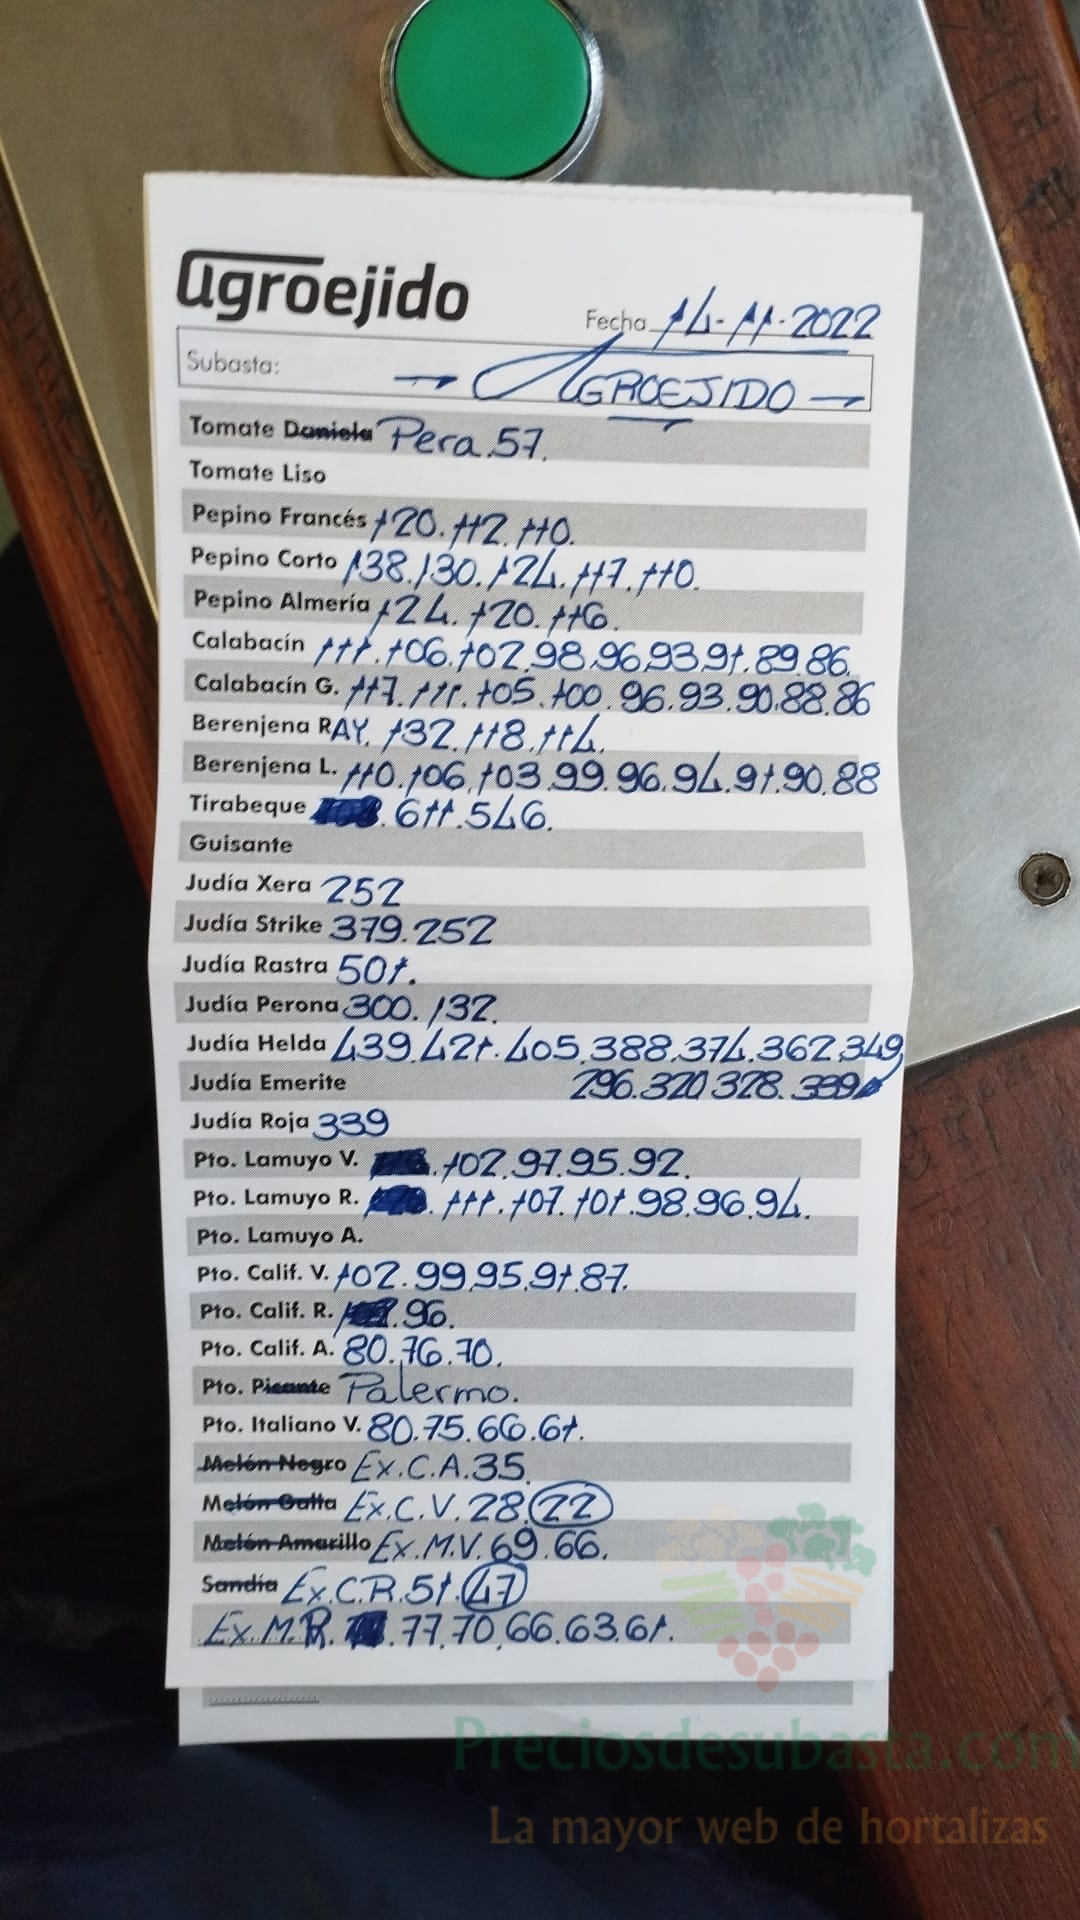 agroejido
Fecha 14-11-2022
Subasta: → AGROEJIDO →
Tomate Daniela Pera.57.
Tomate Liso
Pepino Francés 120.112.110.
Pepino Corto 138.130.124.117.110.
Pepino Almería 124.120.116.
Calabacín 111.106.102.98.96.93.91.89.86.
Calabacín G. 117.111.105.100.96.93.90.88.86
Berenjena RAY. 132.118.114.
Berenjena L. 110.106.103.99.96.94.91.90.88
Tirabeque .611.546.
Guisante
Judía Xera 252
Judía Strike 379.252
Judía Rastra 501.
Judía Perona 300.132.
Judía Helda 439.421.405.388.374.362.349,
Judía Emerite 296.320.328.339
Judía Roja 339
Pto. Lamuyo V. .102.97.95.92.
Pto. Lamuyo R. .111.107.101.98.96.94.
Pto. Lamuyo A.
Pto. Calif. V. 102.99.95.91.87.
Pto. Calif. R. .96.
Pto. Calif. A. 80.76.70.
Pto. Picante Palermo.
Pto. Italiano V. 80.75.66.61.
Melón Negro Ex.C.A.35.
Melón Galia Ex.C.V.28.22
Melón Amarillo Ex.M.V.69.66.
Sandía Ex.C.R.51.47
Ex.M.R. .77.70.66.63.61.
Preciosdesubasta.com
La mayor web de hortalizas